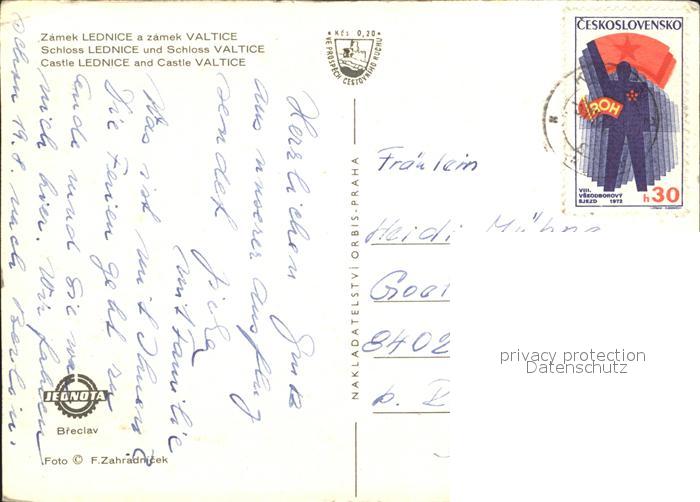 Zámek LEDNICE a zámek VALTICE
Schloss LEDNICE und Schloss VALTICE
Castle LEDNICE and Castle VALTICE
Kčs 0,20
VE PROSPĚCH CESTOVNÍHO RUCHU
ČESKOSLOVENSKO
ROH
VIII.
VŠEODBOROVÝ
SJEZD 1972
h 30
Herzlichen Gruß
aus unserer Ausflug
sendet
Jirka
mit Familie
Was ist mit Ihnen?
Die Ferien geht zu
Ende und Sie
mich hier. Wir fahren
schon 19.8. nach Berlin.
NAKLADATELSTVÍ ORBIS-PRAHA
Fräulein
Heidi
8402
b.
privacy protection
Datenschutz
JEDNOTA
Břeclav
Foto © F.Zahradníček